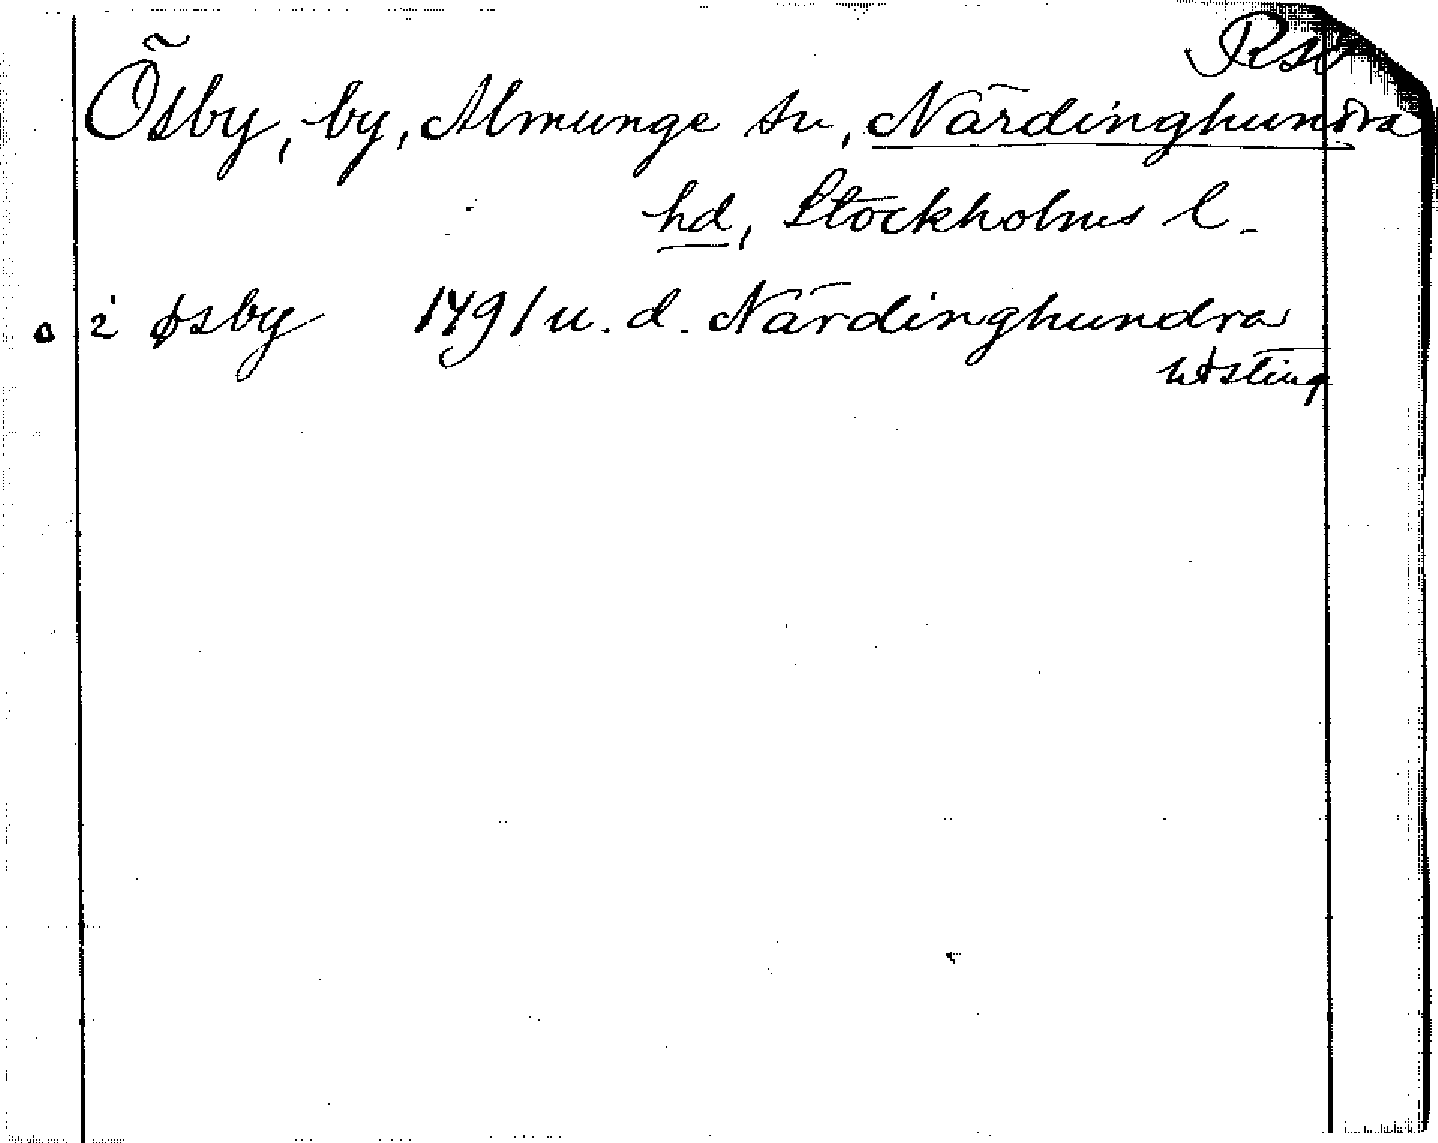 Rsv
Ösby, by, Almunge sn, Närdinghundra
hd, Stockholms l.
i øsby 1491 u. d. Närdinghundra
høsting